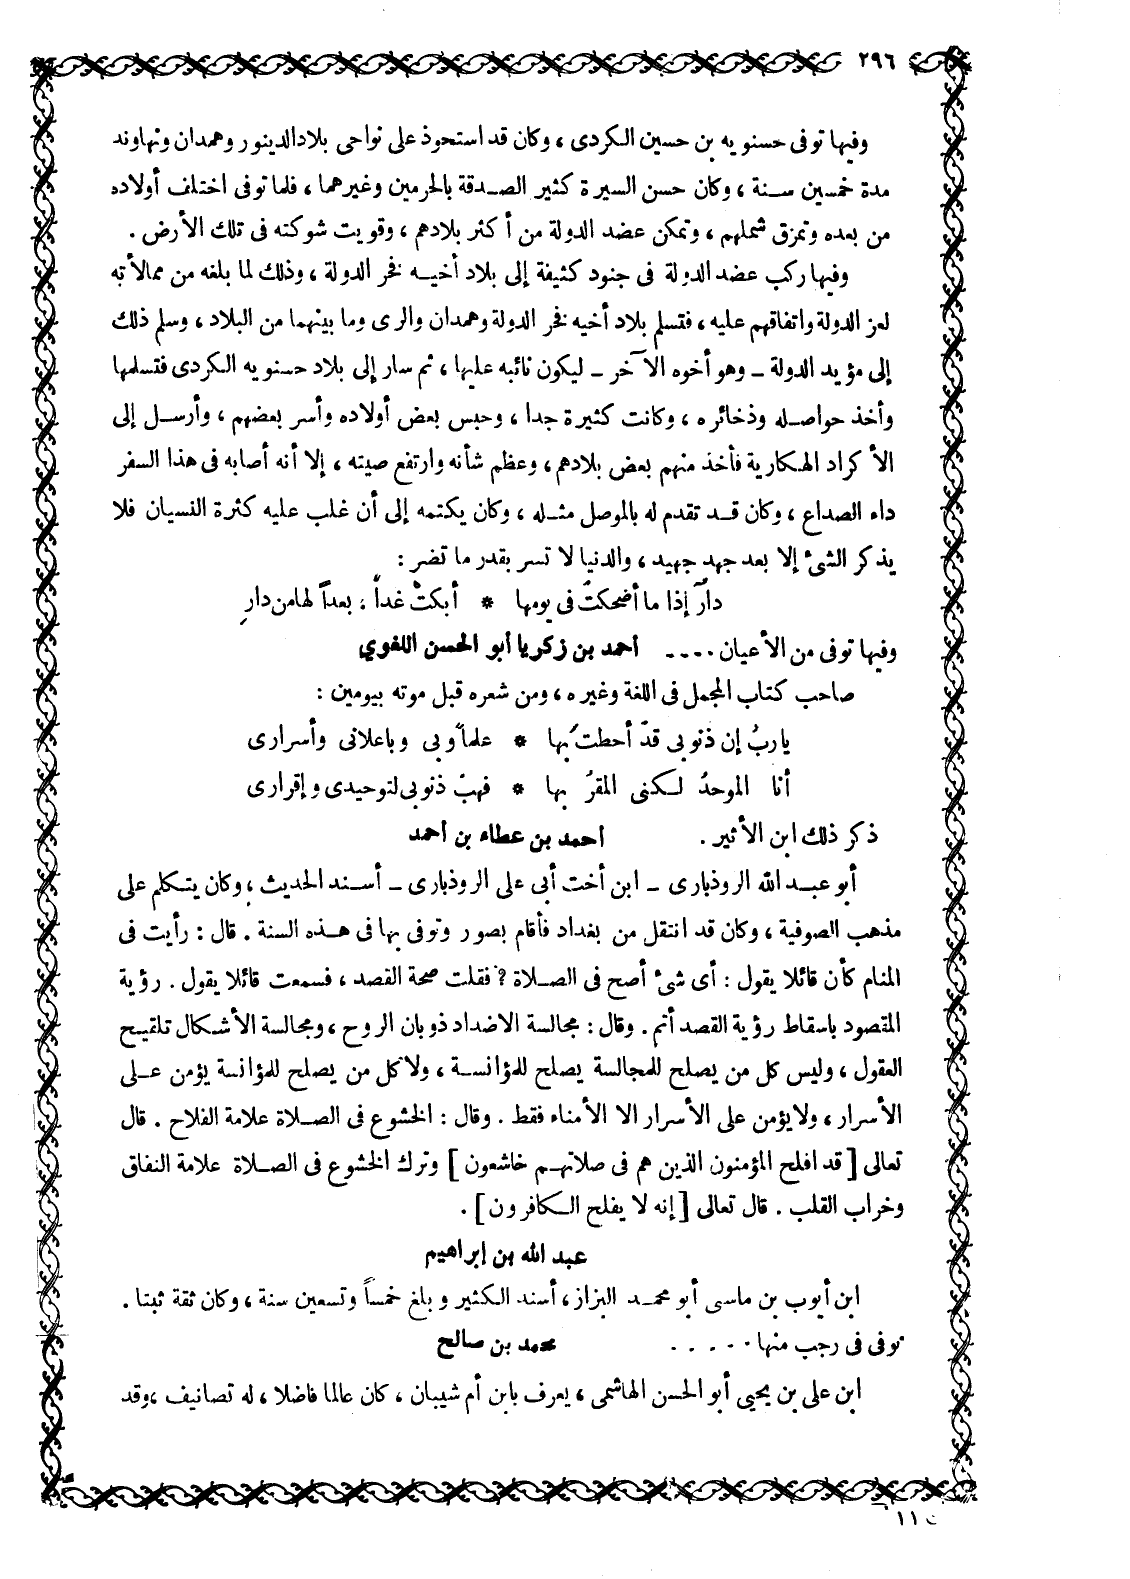 ٢٩٦
وفيها توفى حسنويه بن حسين الكردى ، وكان قد استحوذ على نواحى بلاد الدينور وهمدان ونهاوند
مدة خمسين سنة ، وكان حسن السيرة كثير الصدقة بالحرمين وغيرهما ، فلما توفى اختلف أولاده
من بعده وتمزق شملهم ، وتمكن عضد الدولة من أكثر بلادهم ، وقويت شوكته فى تلك الأرض .
وفيها ركب عضد الدولة فى جنود كثيفة إلى بلاد أخيه فخر الدولة ، وذلك لما بلغه من ممالأته
لعز الدولة واتفاقهم عليه ، فتسلم بلاد أخيه فخر الدولة وهمدان والرى وما بينهما من البلاد ، وسلم ذلك
إلى مؤيد الدولة ــ وهو أخوه الآخر ــ ليكون نائبه عليها ، ثم سار إلى بلاد حسنويه الكردى فتسلمها
وأخذ حواصله وذخائره ، وكانت كثيرة جدا ، وحبس بعض أولاده وأسر بعضهم ، وأرسل إلى
الأكراد الهكارية فأخذ منهم بعض بلادهم ، وعظم شأنه وارتفع صيته ، إلا أنه أصابه فى هذا السفر
داء الصداع ، وكان قد تقدم له بالموصل مثله ، وكان يكتمه إلى أن غلب عليه كثرة النسيان فلا
يذكر الشئ إلا بعد جهد جهيد ، والدنيا لا تسر بقدر ما تضر :
دارٌ إذا ما أضحكتْ فى يومها * أبكتْ غداً ، بعداً لها من دارِ
وفيها توفى من الأعيان .... أحمد بن زكريا أبو الحسن اللغوي
صاحب كتاب المجمل فى اللغة وغيره ، ومن شعره قبل موته بيومين :
يا ربُ إن ذنوبى قدْ أحطتَ بها * علماً وبى وباعلانى وأسرارى
أنا الموحدُ لكنى المقرُ بها * فهبْ ذنوبى لتوحيدى وإقرارى
ذكر ذلك ابن الأثير . أحمد بن عطاء بن أحمد
أبو عبد الله الروذبارى ــ ابن أخت أبى على الروذبارى ــ أسند الحديث ، وكان يتكلم على
مذهب الصوفية ، وكان قد انتقل من بغداد فأقام بصور وتوفى بها فى هذه السنة . قال : رأيت فى
المنام كأن قائلا يقول : أى شئ أصح فى الصلاة ؟ فقلت صحة القصد ، فسمعت قائلا يقول . رؤية
المقصود باسقاط رؤية القصد أتم . وقال : مجالسة الاضداد ذوبان الروح ، ومجالسة الأشكال تلقيح
العقول ، وليس كل من يصلح للمجالسة يصلح للمؤانسة ، ولا كل من يصلح للمؤانسة يؤمن على
الأسرار ، ولا يؤمن على الأسرار الا الأمناء فقط . وقال : الخشوع فى الصلاة علامة الفلاح . قال
تعالى [ قد افلح المؤمنون الذين هم فى صلاتهم خاشعون ] وترك الخشوع فى الصلاة علامة النفاق
وخراب القلب . قال تعالى [ إنه لا يفلح الكافرون ] .
عبد الله بن إبراهيم
ابن أيوب بن ماسى أبو محمد البزاز ، أسند الكثير وبلغ خمساً وتسعين سنة ، وكان ثقة ثبتا .
توفى فى رجب منها ..... محمد بن صالح
ابن على بن يحيى أبو الحسن الهاشمى ، يعرف بابن أم شيبان ، كان عالما فاضلا ، له تصانيف ، وقد
١١